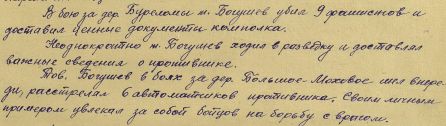 В бою за дер. Буреломы т. Богушев убил 9 фашистов и
доставил ценные документы комполка.
Неоднократно т. Богушев ходил в разведку и доставлял
важные сведения о противнике.
Тов. Богушев в боях за дер. Большое Моховое шел впере-
ди, расстрелял 6 автоматчиков противника. Своим личным
примером увлекал за собой бойцов на борьбу с врагом.